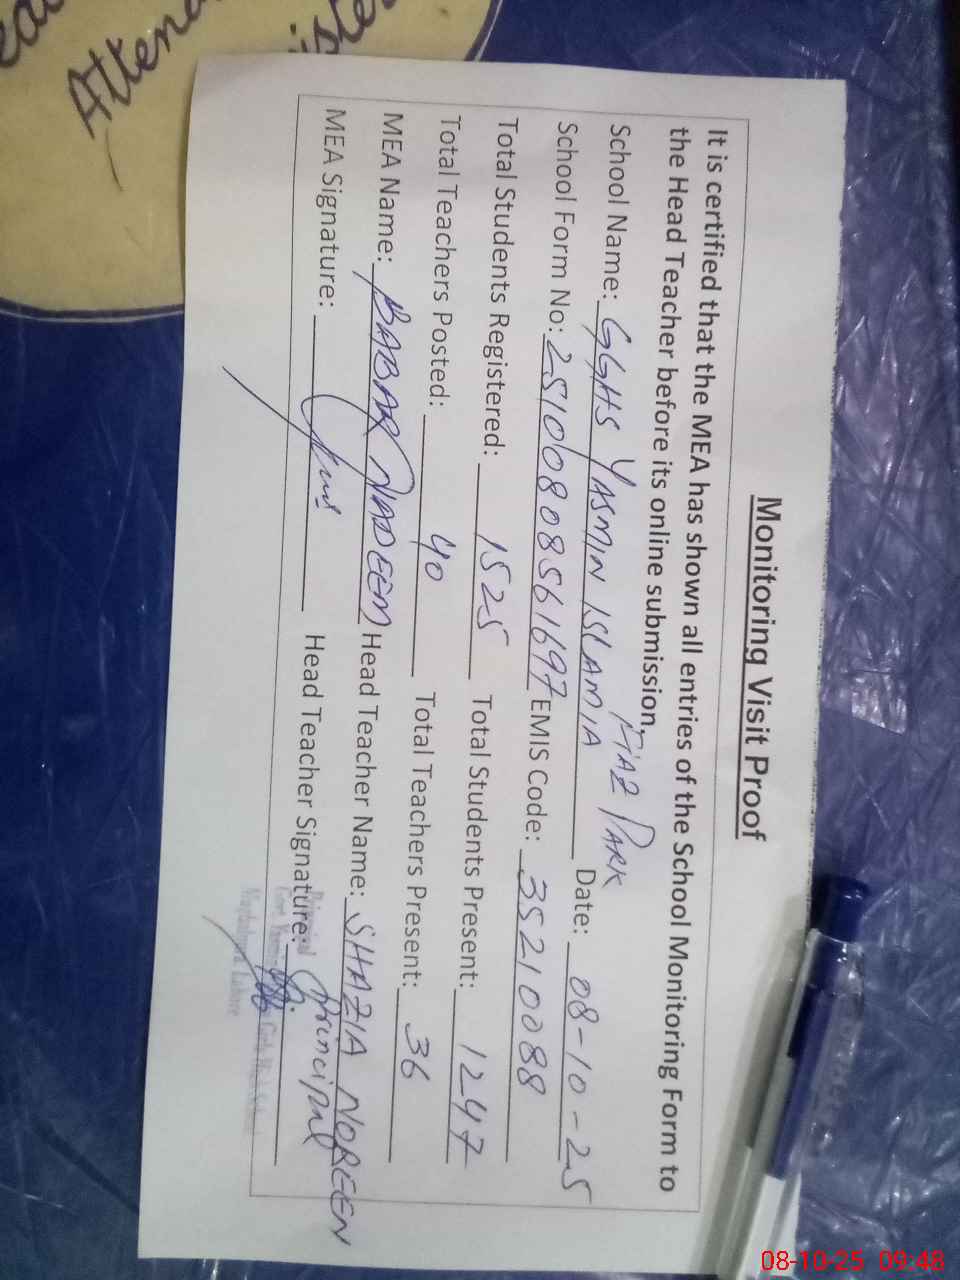 Atten
Monitoring Visit Proof
It is certified that the MEA has shown all entries of the School Monitoring Form to
the Head Teacher before its online submission.
School Name: GGHS YASMIN ISLAMIA PARK Date: 08-10-25
School Form No: 25100808561697 EMIS Code: 35210088
Total Students Registered: 1525 Total Students Present: 1247
Total Teachers Posted: 40 Total Teachers Present: 36
MEA Name: BABAR NADEEM Head Teacher Name: SHAZIA NOREEN
MEA Signature: Head Teacher Signature: Principal
Principal
Govt Girls High School
Lahore
08-10-25 09:48